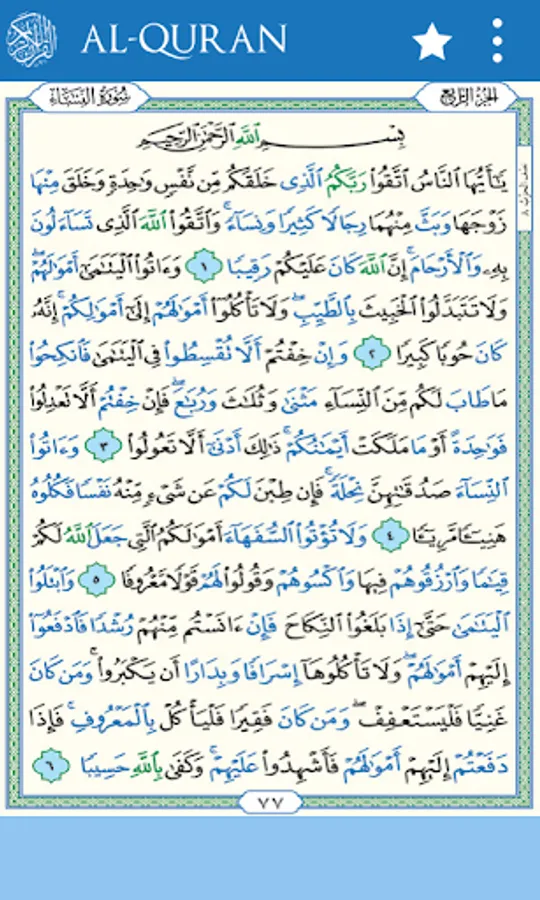 AL-QURAN
سُورَةُ النِّسَاءِ الجُزْءُ الرَّابِعُ
بِسْمِ اللَّهِ الرَّحْمَٰنِ الرَّحِيمِ
يَٰٓأَيُّهَا ٱلنَّاسُ ٱتَّقُوا۟ رَبَّكُمُ ٱلَّذِى خَلَقَكُم مِّن نَّفْسٍ وَٰحِدَةٍ وَخَلَقَ مِنْهَا
زَوْجَهَا وَبَثَّ مِنْهُمَا رِجَالًا كَثِيرًا وَنِسَآءً ۚ وَٱتَّقُوا۟ ٱللَّهَ ٱلَّذِى تَسَآءَلُونَ
بِهِۦ وَٱلْأَرْحَامَ ۚ إِنَّ ٱللَّهَ كَانَ عَلَيْكُمْ رَقِيبًا ١ وَءَاتُوا۟ ٱلْيَتَٰمَىٰٓ أَمْوَٰلَهُمْ ۖ
وَلَا تَتَبَدَّلُوا۟ ٱلْخَبِيثَ بِٱلطَّيِّبِ ۖ وَلَا تَأْكُلُوٓا۟ أَمْوَٰلَهُمْ إِلَىٰٓ أَمْوَٰلِكُمْ ۚ إِنَّهُۥ
كَانَ حُوبًا كَبِيرًا ٢ وَإِنْ خِفْتُمْ أَلَّا تُقْسِطُوا۟ فِى ٱلْيَتَٰمَىٰ فَٱنكِحُوا۟
مَا طَابَ لَكُم مِّنَ ٱلنِّسَآءِ مَثْنَىٰ وَثُلَٰثَ وَرُبَٰعَ ۖ فَإِنْ خِفْتُمْ أَلَّا تَعْدِلُوا۟
فَوَٰحِدَةً أَوْ مَا مَلَكَتْ أَيْمَٰنُكُمْ ۚ ذَٰلِكَ أَدْنَىٰٓ أَلَّا تَعُولُوا۟ ٣ وَءَاتُوا۟
ٱلنِّسَآءَ صَدُقَٰتِهِنَّ نِحْلَةً ۚ فَإِن طِبْنَ لَكُمْ عَن شَىْءٍ مِّنْهُ نَفْسًا فَكُلُوهُ
هَنِيٓـًٔا مَّرِيٓـًٔا ٤ وَلَا تُؤْتُوا۟ ٱلسُّفَهَآءَ أَمْوَٰلَكُمُ ٱلَّتِى جَعَلَ ٱللَّهُ لَكُمْ
قِيَٰمًا وَٱرْزُقُوهُمْ فِيهَا وَٱكْسُوهُمْ وَقُولُوا۟ لَهُمْ قَوْلًا مَّعْرُوفًا ٥ وَٱبْتَلُوا۟
ٱلْيَتَٰمَىٰ حَتَّىٰٓ إِذَا بَلَغُوا۟ ٱلنِّكَاحَ فَإِنْ ءَانَسْتُم مِّنْهُمْ رُشْدًا فَٱدْفَعُوٓا۟
إِلَيْهِمْ أَمْوَٰلَهُمْ ۖ وَلَا تَأْكُلُوهَآ إِسْرَافًا وَبِدَارًا أَن يَكْبَرُوا۟ ۚ وَمَن كَانَ
غَنِيًّا فَلْيَسْتَعْفِفْ ۖ وَمَن كَانَ فَقِيرًا فَلْيَأْكُلْ بِٱلْمَعْرُوفِ ۚ فَإِذَا
دَفَعْتُمْ إِلَيْهِمْ أَمْوَٰلَهُمْ فَأَشْهِدُوا۟ عَلَيْهِمْ ۚ وَكَفَىٰ بِٱللَّهِ حَسِيبًا ٦
٧٧